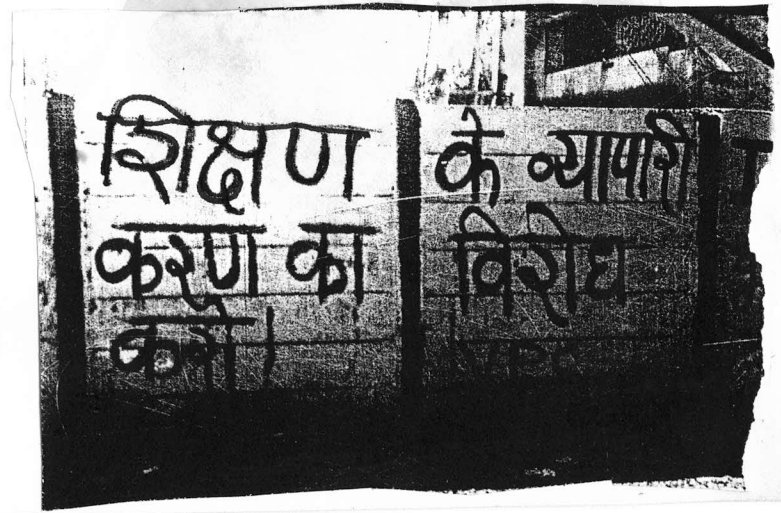 शिक्षण के व्यापारी
करण का विरोध
करो।